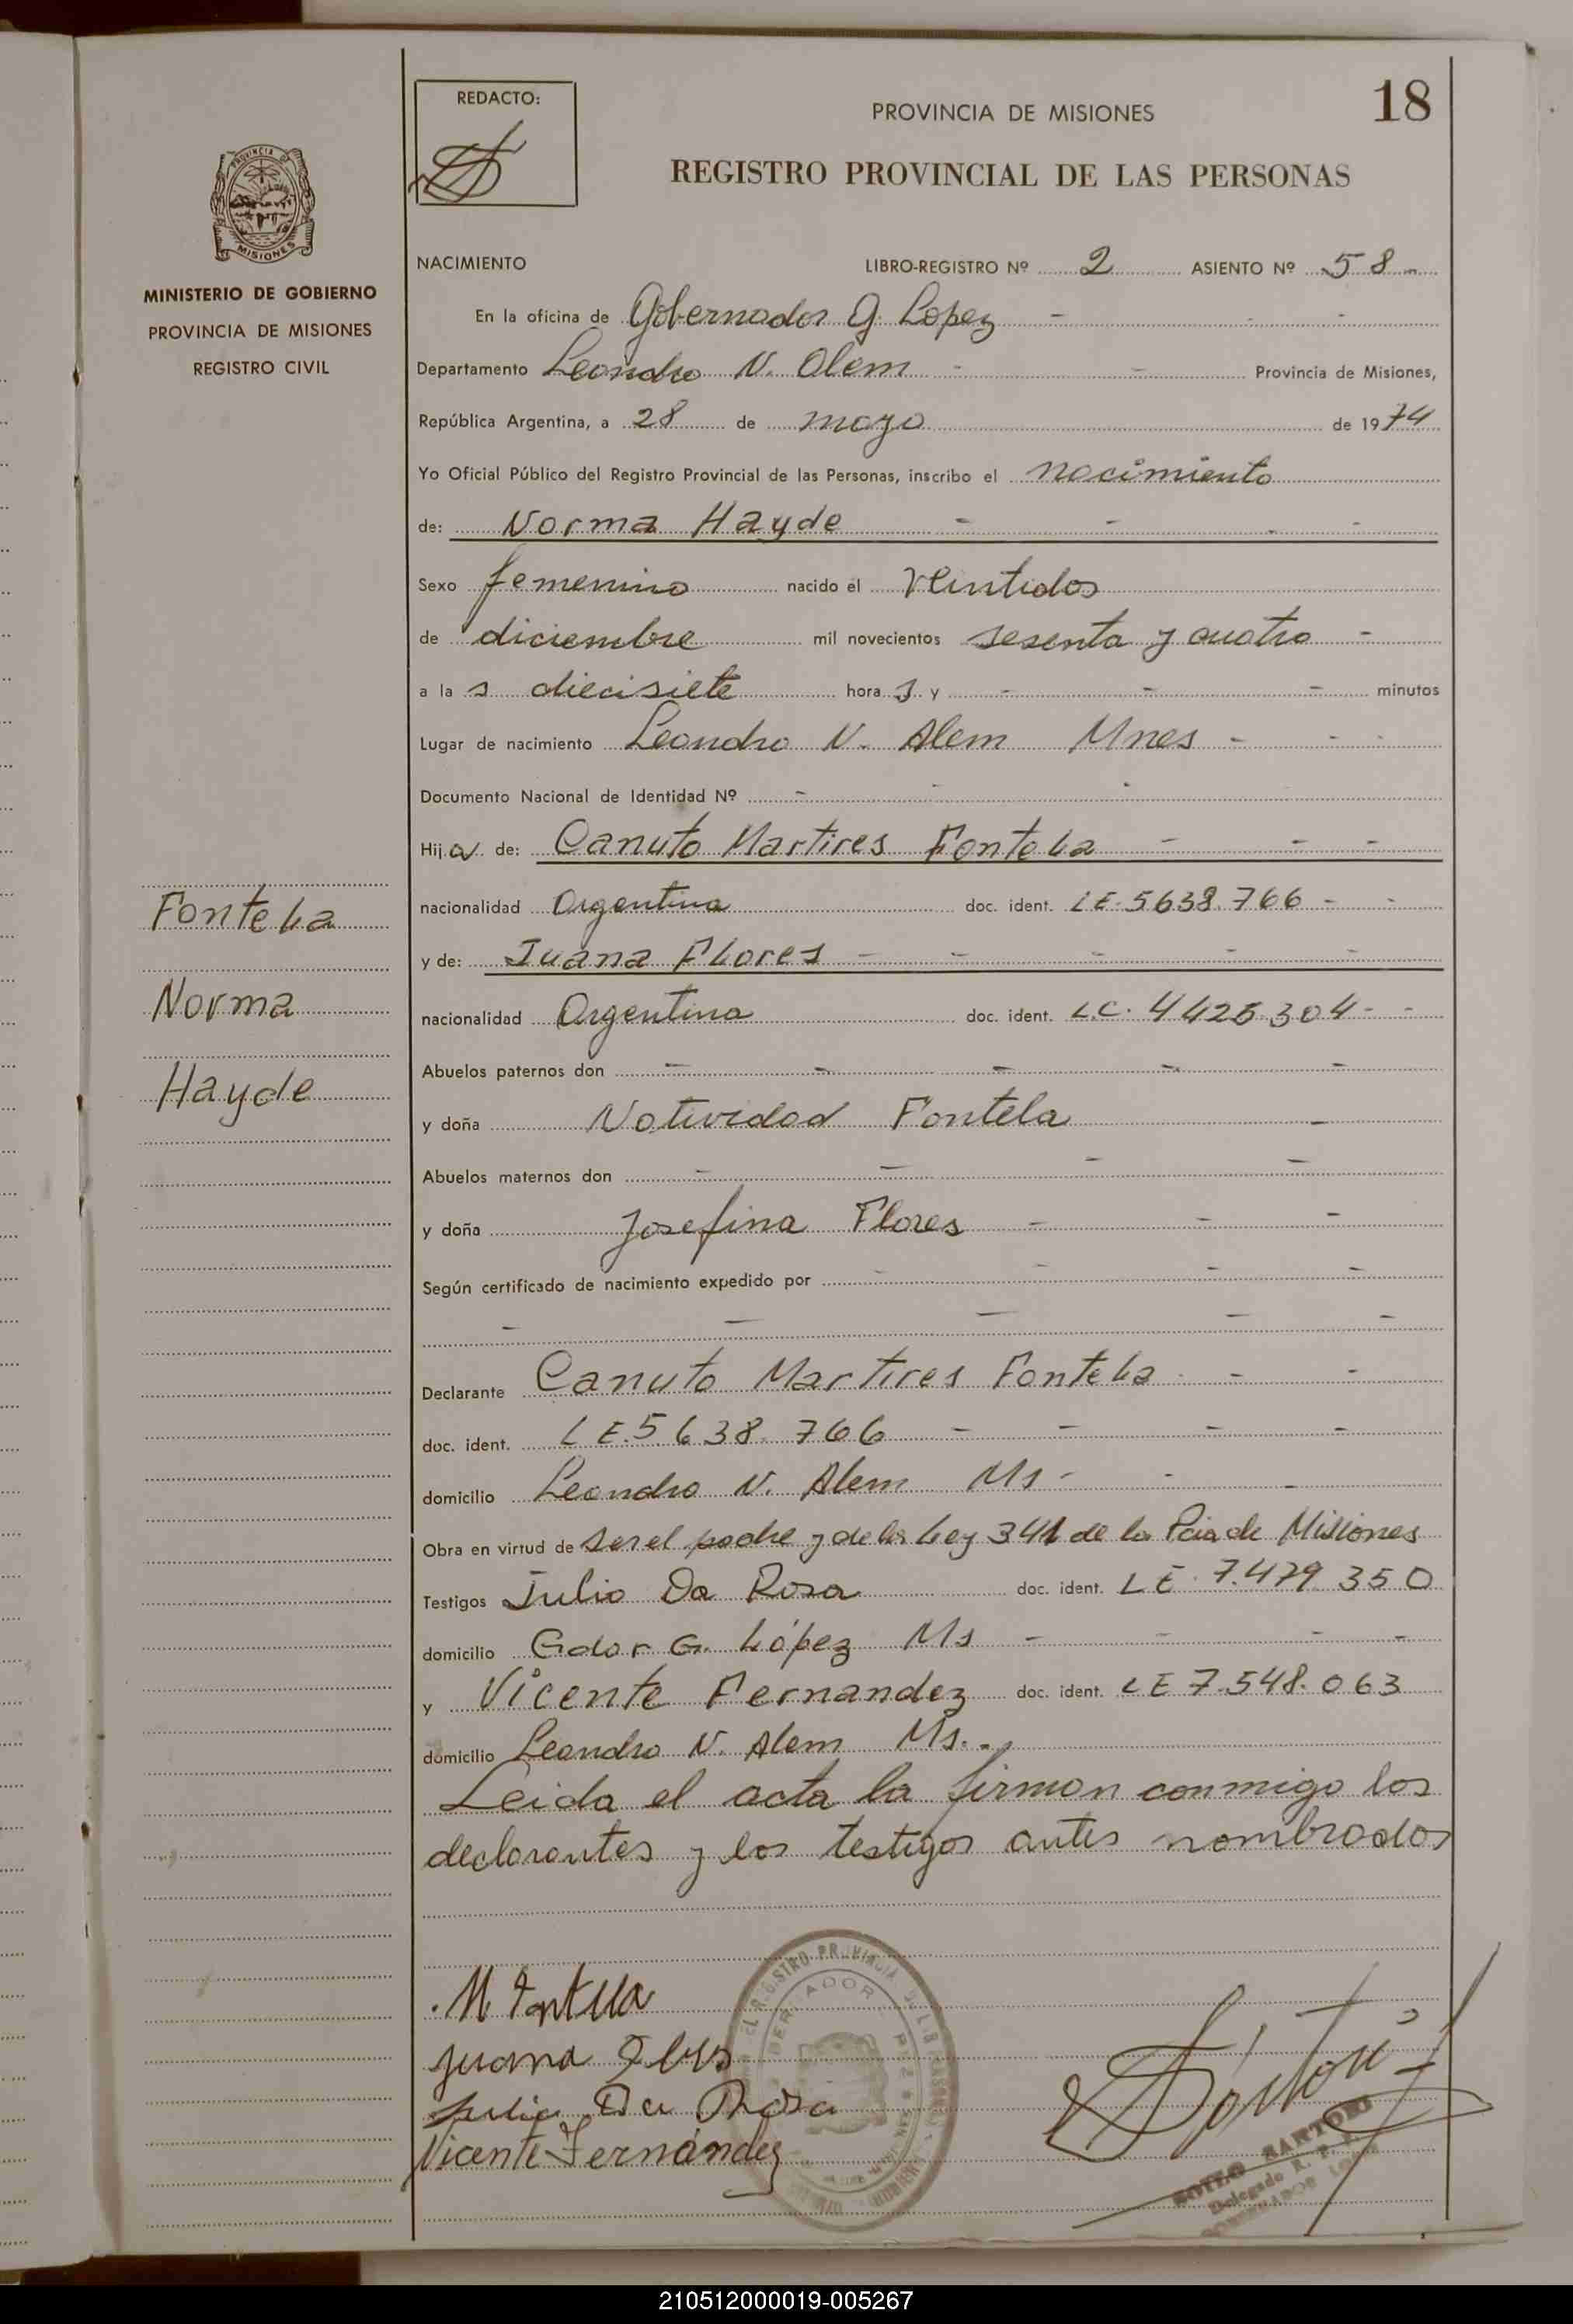 REDACTO:
18
PROVINCIA DE MISIONES
REGISTRO PROVINCIAL DE LAS PERSONAS
PROVINCIA DE
MISIONES
MINISTERIO DE GOBIERNO
PROVINCIA DE MISIONES
REGISTRO CIVIL
NACIMIENTO LIBRO-REGISTRO Nº 2 ASIENTO Nº 58
En la oficina de Gobernador G. Lopez
Departamento Leandro N. Alem Provincia de Misiones,
República Argentina, a 28 de mayo de 1974
Yo Oficial Público del Registro Provincial de las Personas, inscribo el nacimiento
de: Norma Hayde
Sexo femenino nacido el veintidos
de diciembre mil novecientos sesenta y cuatro
a las diecisiete horas y - minutos
Lugar de nacimiento Leandro N. Alem Mnes
Documento Nacional de Identidad Nº -
Hija de: Canuto Martires Fontela
nacionalidad Argentina doc. ident. LE. 5638.766
y de: Juana Flores
nacionalidad Argentina doc. ident. L.C. 4425304
Abuelos paternos don -
y doña Natividad Fontela
Abuelos maternos don -
y doña Josefina Flores
Según certificado de nacimiento expedido por -
Declarante Canuto Martires Fontela
doc. ident. LE. 5638.766
domicilio Leandro N. Alem Ms
Obra en virtud de ser el padre y de la Ley 341 de la Pcia de Misiones
Testigos Julio Da Rosa doc. ident. LE 7.479 350
domicilio Gdor G. López Ms
y Vicente Fernandez doc. ident. LE 7.548.063
domicilio Leandro N. Alem Ms.
Leida el acta la firman conmigo los
declarantes y los testigos antes nombrados
Fontela
Norma
Hayde
M Fontela
Juana Flores
Julio Da Rosa
Vicente Fernández
ZOILO SARTORI
Delegado R. P. P.
GOBERNADOR LOPEZ
210512000019-005267